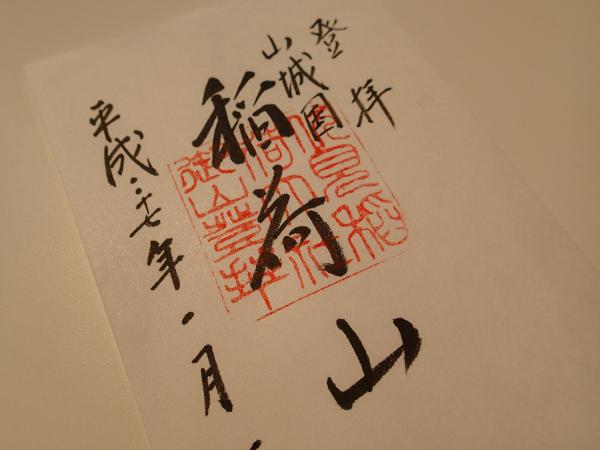 登拝
山城国
稲荷山
平成二十七年一月